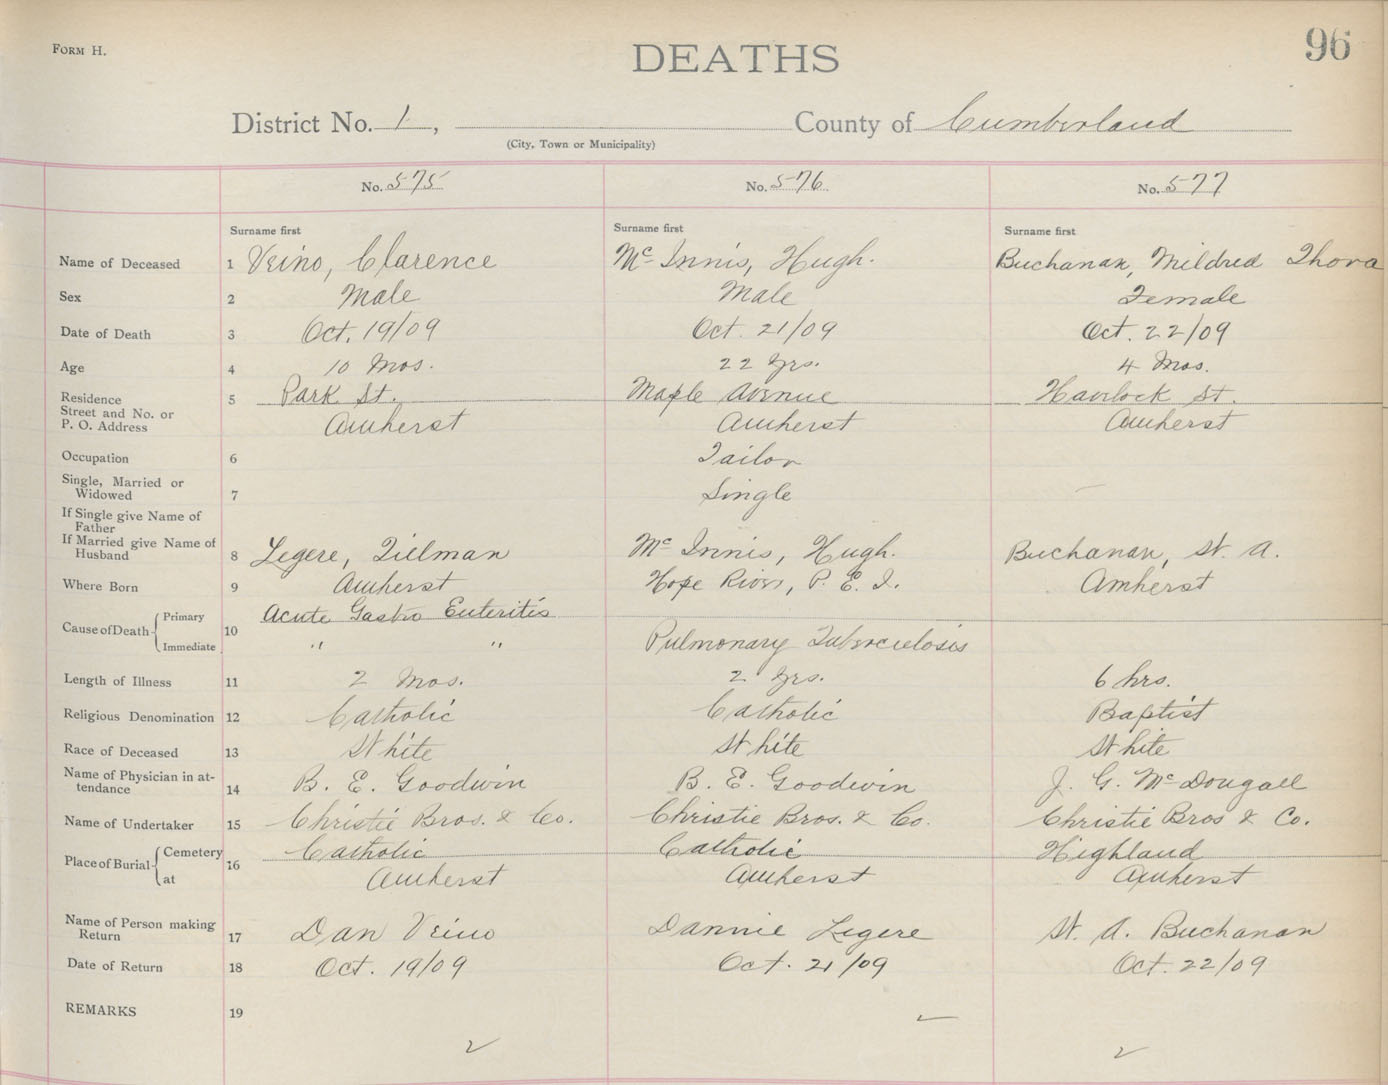 FORM H.
DEATHS
96
District No. 1, County of Cumberland
(City, Town or Municipality)
No. 575 No. 576 No. 577
Surname first Surname first Surname first
Name of Deceased 1 Veino, Clarence Mc Innis, Hugh. Buchanan, Mildred Thora
Sex 2 Male Male Female
Date of Death 3 Oct. 19/09 Oct. 21/09 Oct. 22/09
Age 4 10 Mos. 22 Yrs. 4 Mos.
Residence 5 Park St. Maple Avenue Havelock St.
Street and No. or
P. O. Address Amherst Amherst Amherst
Occupation 6 Tailor
Single, Married or
Widowed 7 Single
If Single give Name of
Father
If Married give Name of
Husband 8 Legere, Tillman Mc Innis, Hugh. Buchanan, W. A.
Where Born 9 Amherst Hope River, P. E. I. Amherst
Cause of Death Primary 10 Acute Gastro Enteritis
Immediate " " Pulmonary Tuberculosis
Length of Illness 11 2 Mos. 2 yrs. 6 hrs.
Religious Denomination 12 Catholic Catholic Baptist
Race of Deceased 13 White White White
Name of Physician in at-
tendance 14 B. E. Goodwin B. E. Goodwin J. G. Mc Dougall
Name of Undertaker 15 Christie Bros. & Co. Christie Bros. & Co. Christie Bros & Co.
Place of Burial Cemetery 16 Catholic Catholic Highland
at Amherst Amherst Amherst
Name of Person making
Return 17 Dan Veino Dannie Legere W. A. Buchanan
Date of Return 18 Oct. 19/09 Oct. 21/09 Oct. 22/09
REMARKS 19